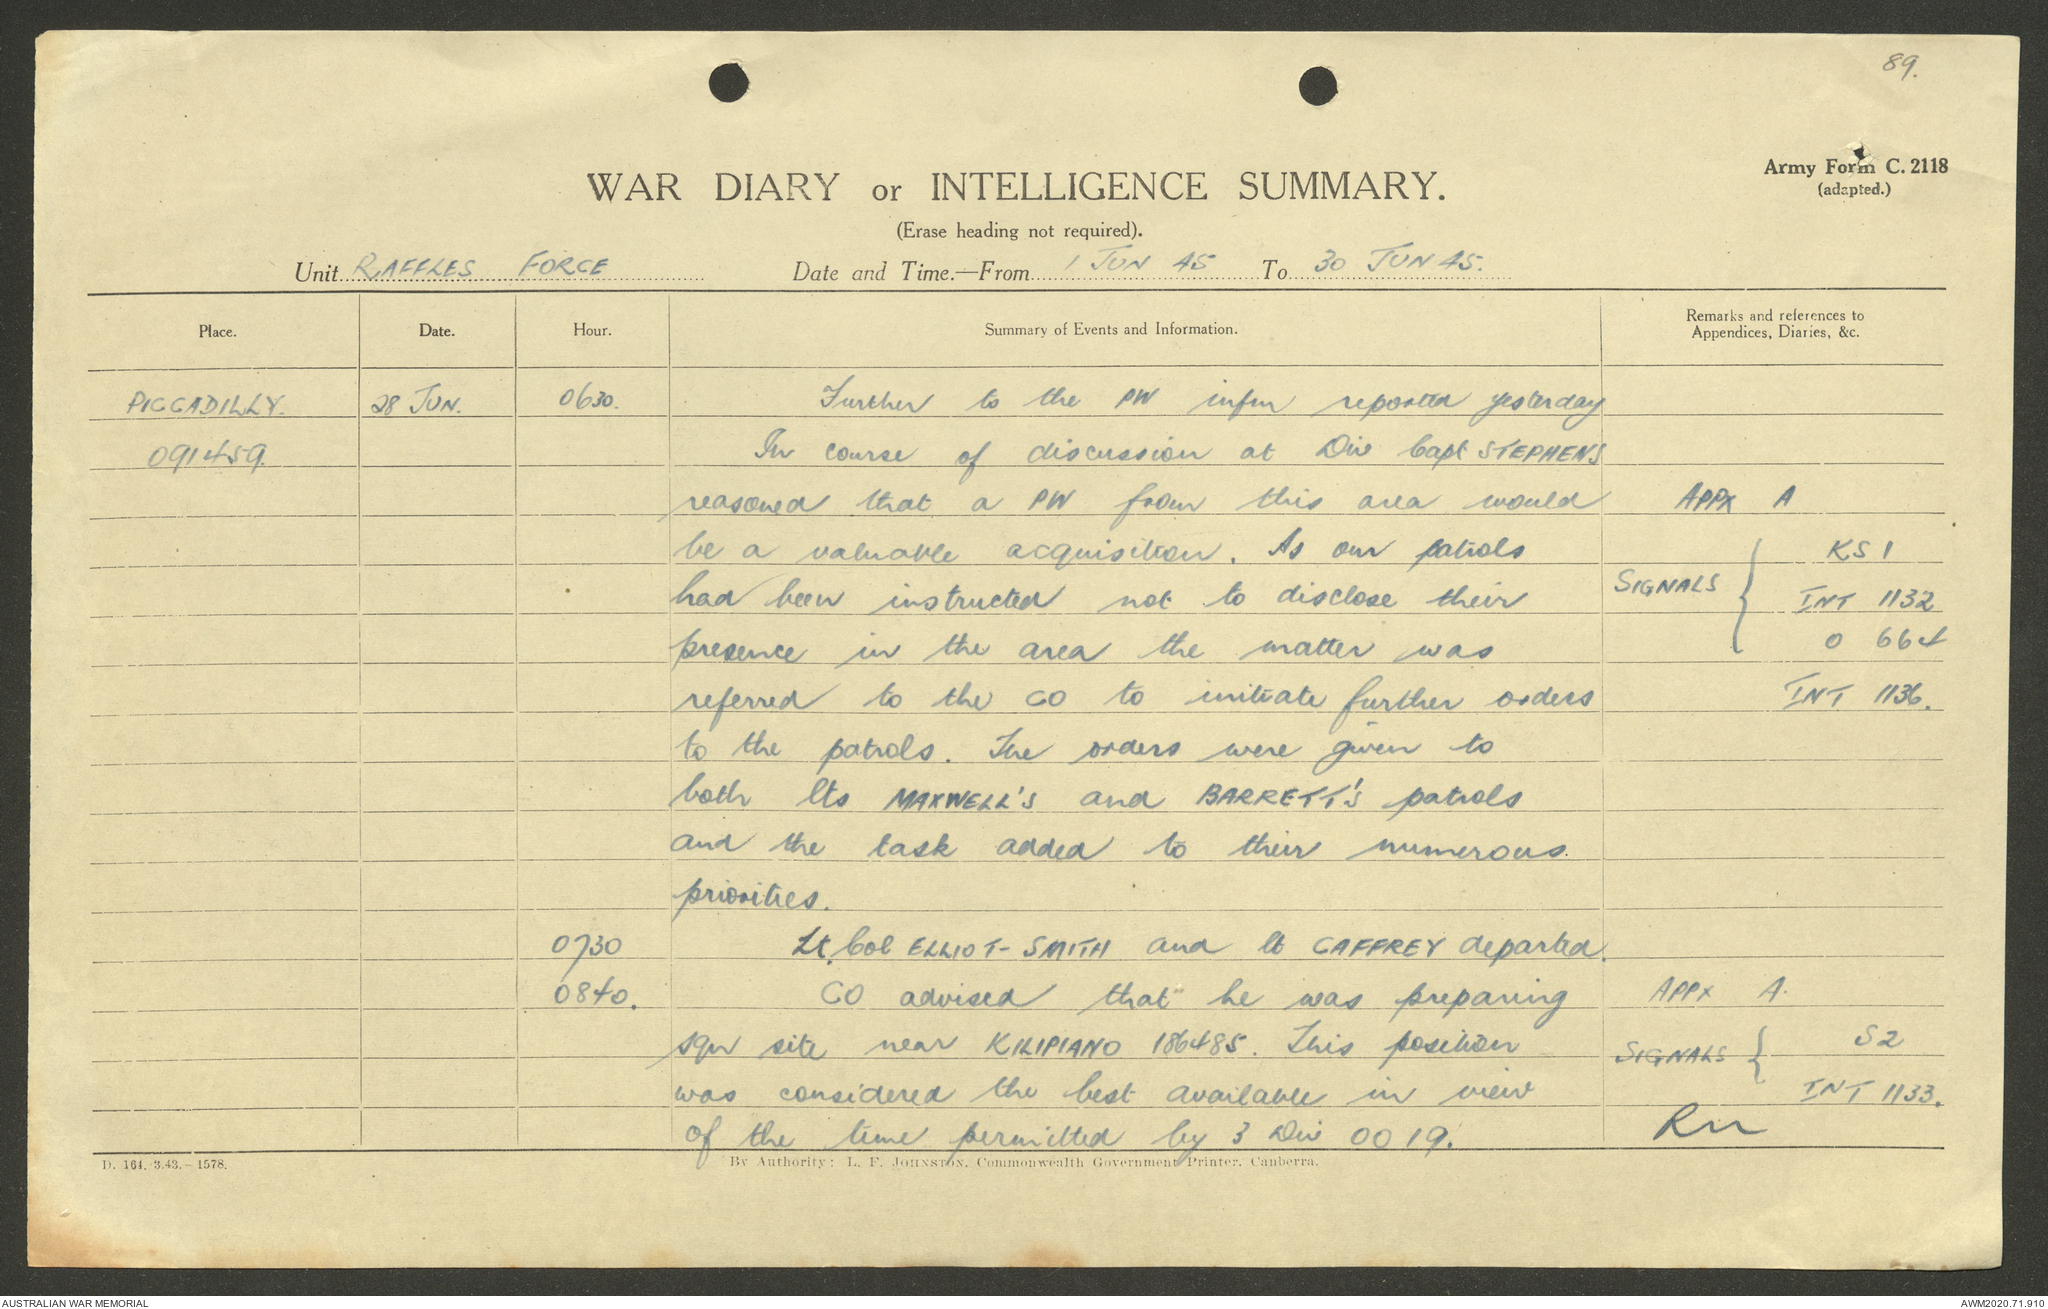 89.
Army Form C. 2118
(adapted.)
WAR DIARY or INTELLIGENCE SUMMARY.
(Erase heading not required).
Unit RAFFLES FORCE Date and Time.—From 1 JUN 45 To 30 JUN 45.
Place. Date. Hour. Summary of Events and Information. Remarks and references to Appendices, Diaries, &c.
PICCADILLY. 28 JUN. 0630. Further to the PW infm reported yesterday
091459. In course of discussion at Div Capt STEPHENS
reasoned that a PW from this area would APPX A
be a valuable acquisition. As our patrols KS 1
had been instructed not to disclose their SIGNALS { INT 1132
presence in the area the matter was O 664
referred to the CO to initiate further orders INT 1136.
to the patrols. The orders were given to
both Lts MAXWELL'S and BARRETT'S patrols
and the task added to their numerous
priorities.
0730 Lt. Col ELLIOT-SMITH and Lt GAFFREY departed.
0840. CO advised that he was preparing APPX A.
sqn site near KILIPIANO 186485. This position SIGNALS { S2
was considered the best available in view INT 1133.
of the time permitted by 3 Div OO 19.
D. 164. 3.43.—1578. By Authority: L. F. JOHNSTON, Commonwealth Government Printer, Canberra.
AUSTRALIAN WAR MEMORIAL AWM2020.71.910